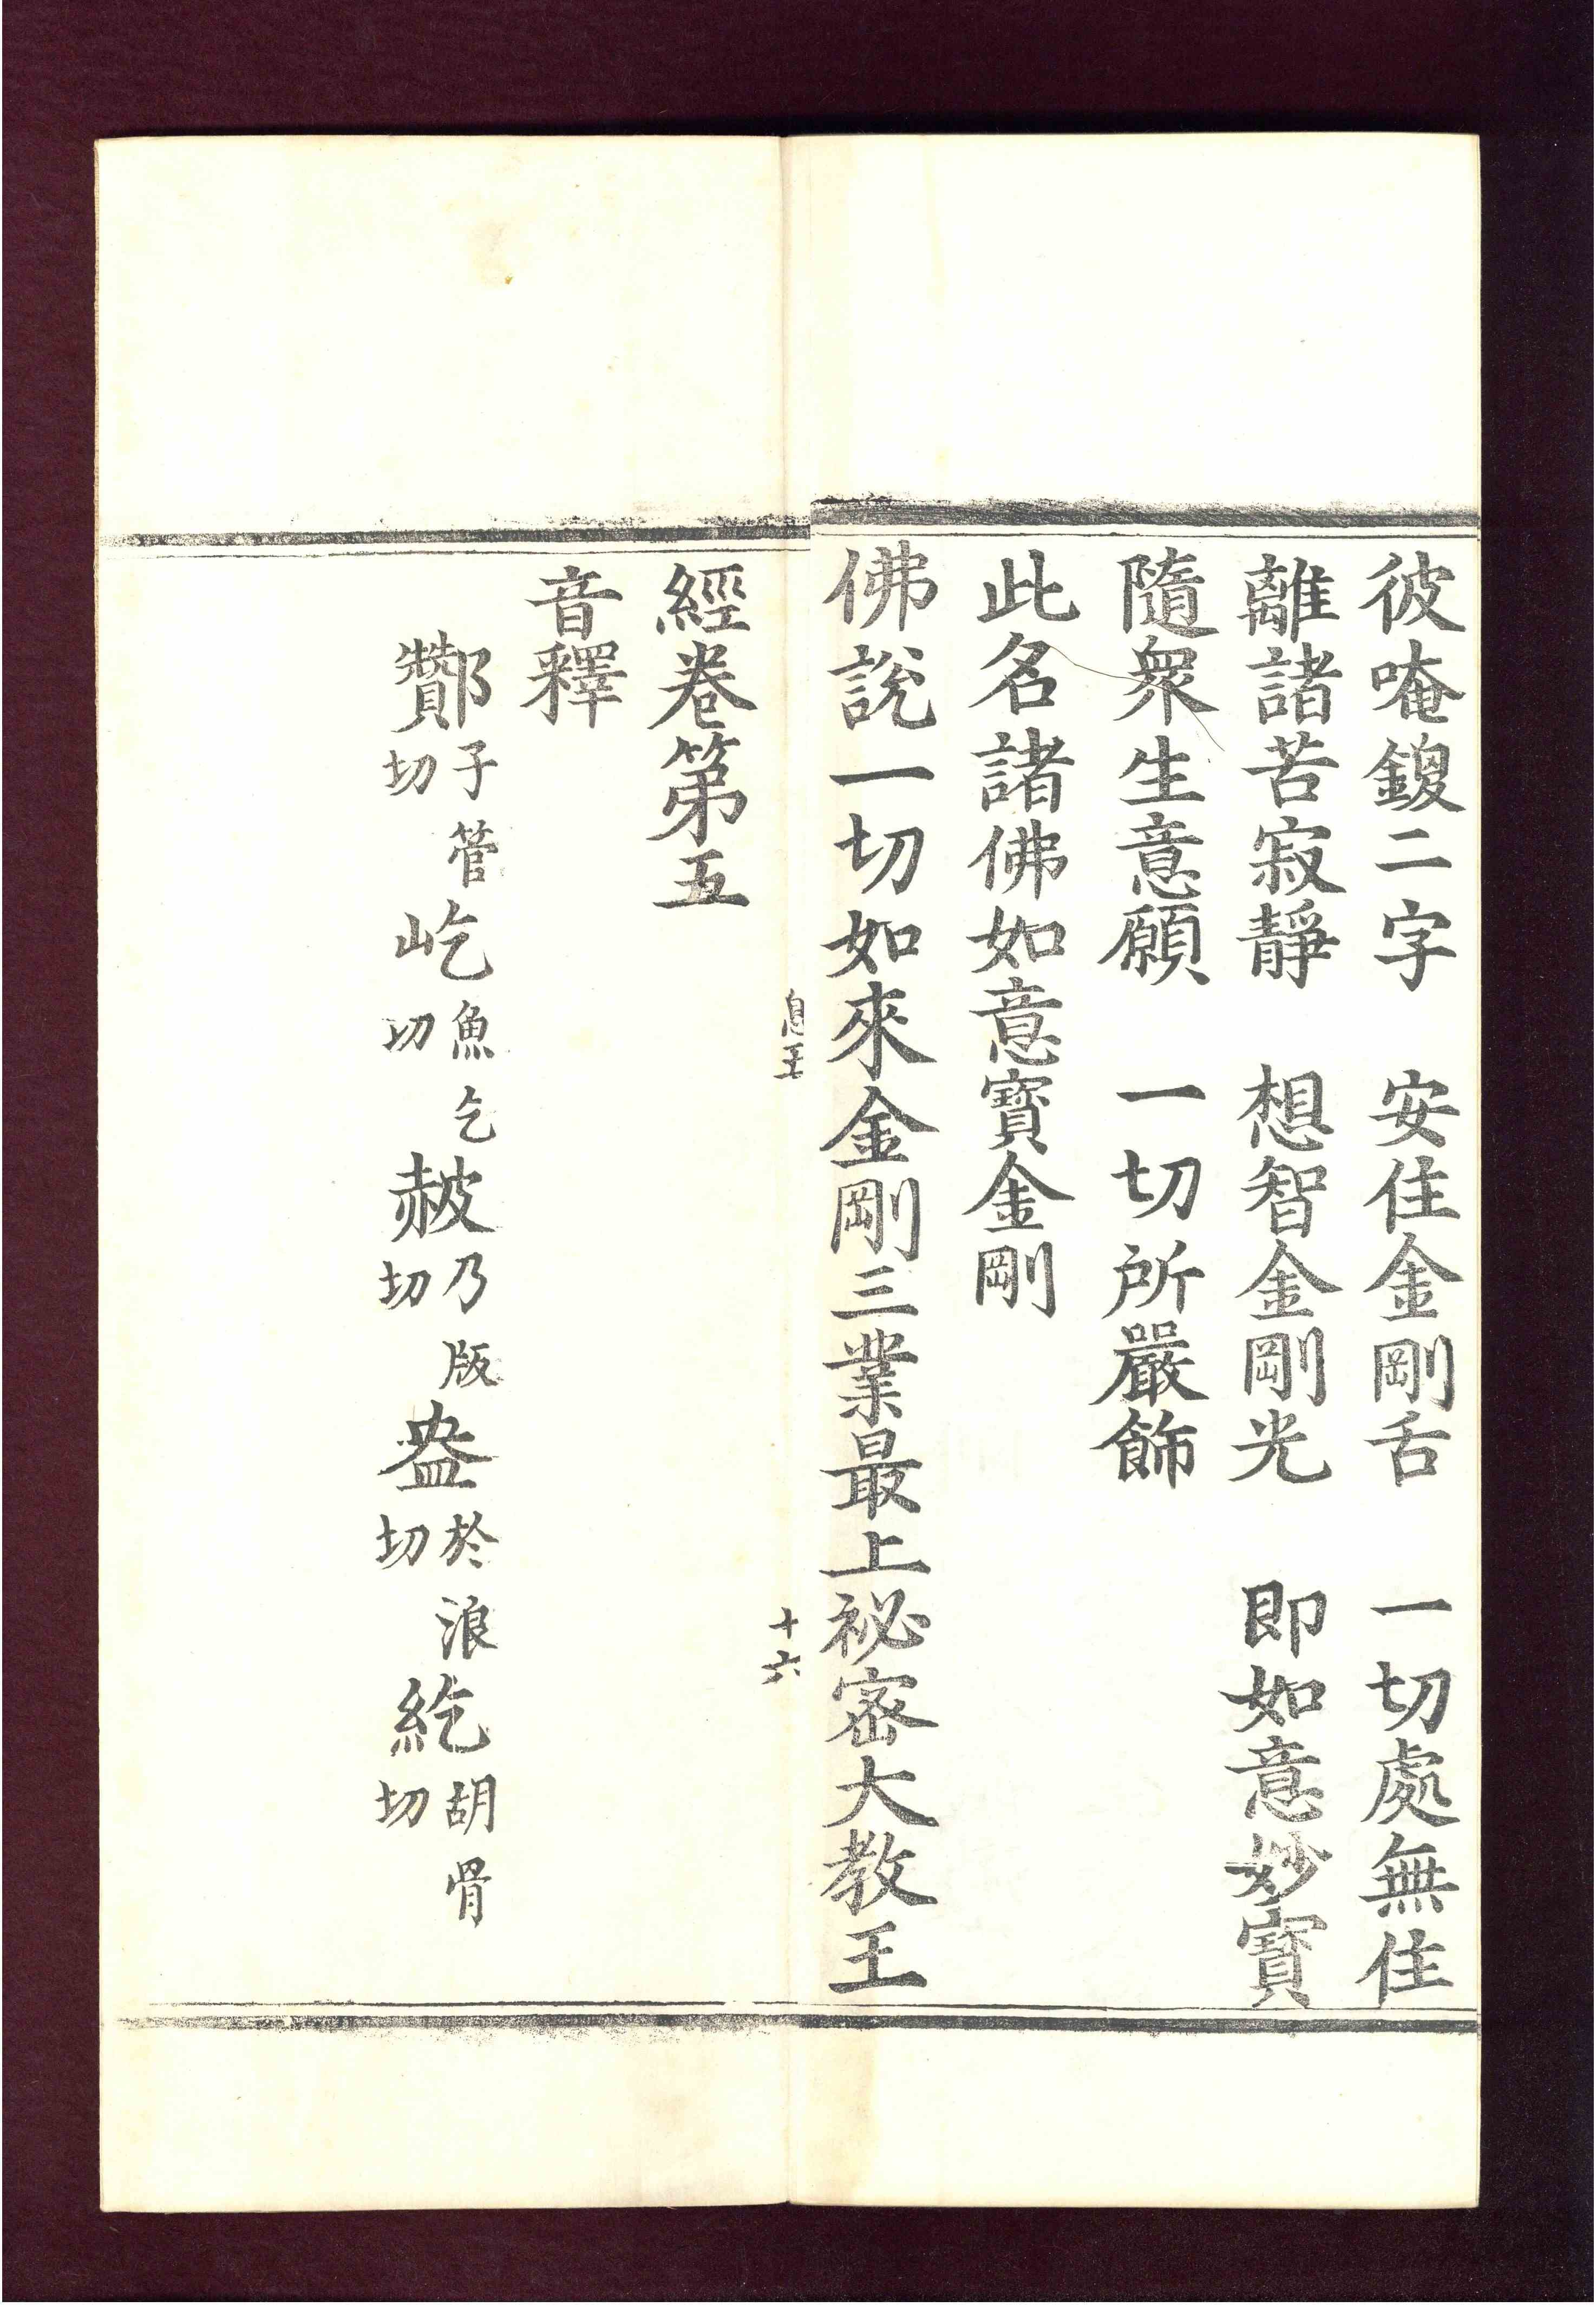 彼唵鑁二字　安住金剛舌　一切處無住
離諸苦寂靜　想智金剛光　即如意妙寶
隨衆生意願　一切所嚴飾
此名諸佛如意寶金剛
佛說一切如來金剛三業最上祕密大教王
息五　十六
經卷第五
音釋
酇子管切屹魚乞切赧乃版切盎於浪切紇胡骨切